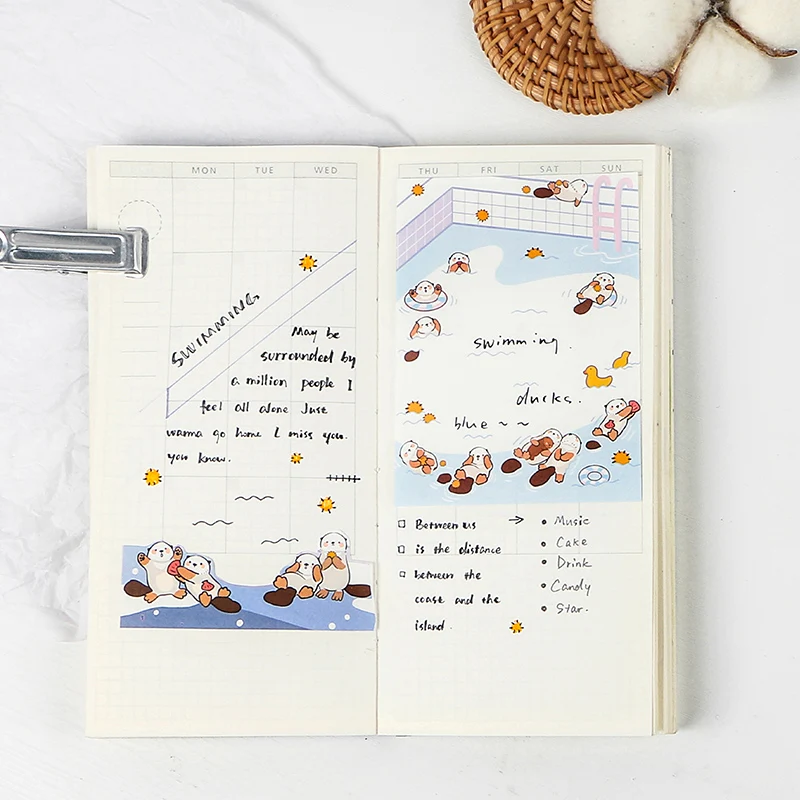 MON TUE WED
SWIMMING
May be
surrounded by
a million people I
feel all alone Just
wanna go home I miss you.
you know.
THU FRI SAT SUN
swimming.
ducks.
blue ~ ~
Between us
is the distance
between the
coast and the
island.
→
• Music
• Cake
• Drink
• Candy
• Star.